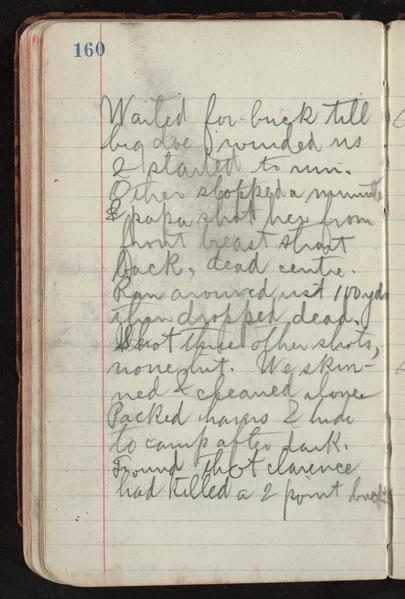 160
Waited for buck till
big doe winded us
& started to run.
Other stopped a minute
& papa shot her from
front breast strait
back, dead centre.
Ran around just 100 yds
then dropped dead.
Shot three other shots,
none hit. We skin-
ned & cleaned alone
Packed hams & hide
to camp after dark.
Found that clarence
had killed a 2 point buck